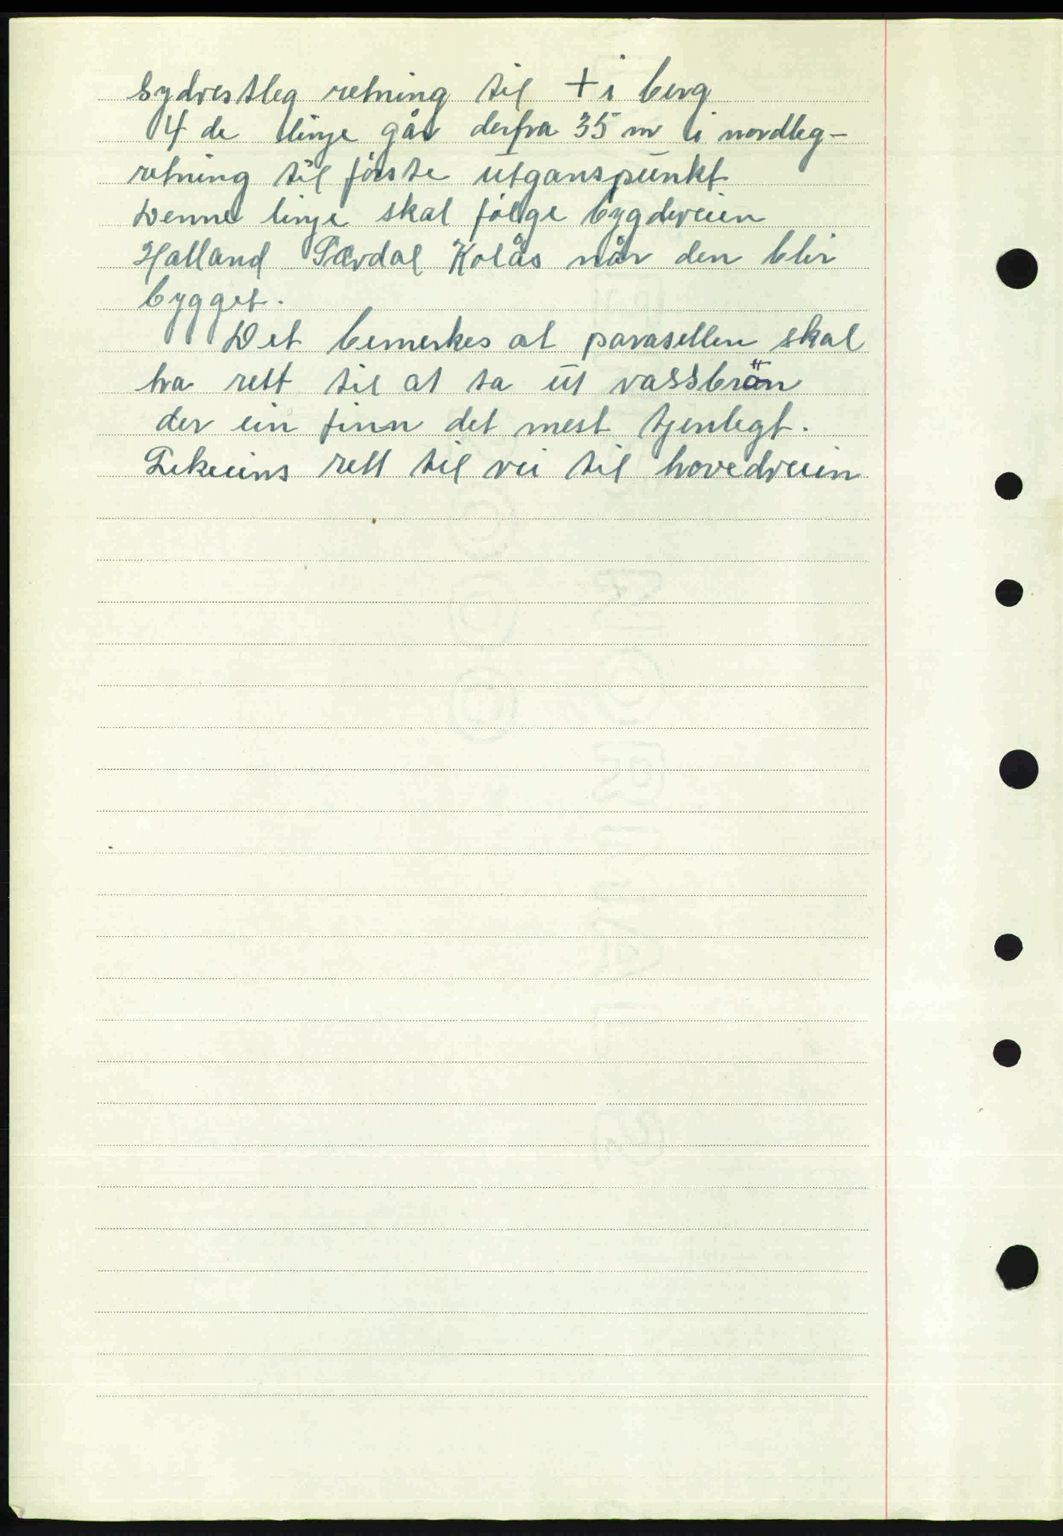 Sydvestleg retning til + i berg
4 de linje går derfra 35 m i nordleg-
retning til første utganspunkt
Denne linje skal følge bygdeveien
Halland Tævdal Kolås når den blir
bygget.
Det bemerkes at parasellen skal
ha rett til at ta ut vassbrön
der ein finn det mest tjenlegt.
Likeeins rett til vei til hovedveien